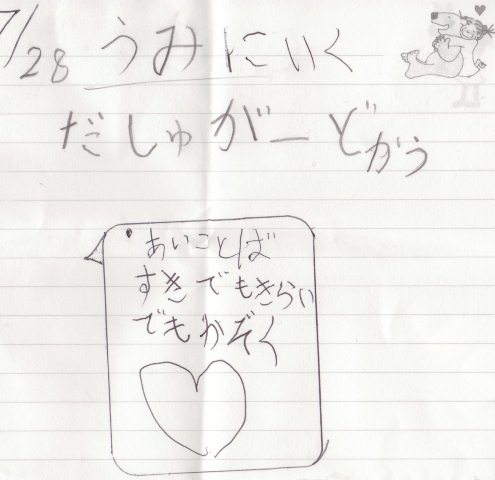 7/28 うみにいく
だしゅがーどかう
あいことば
すきでもきらい
でもかぞく